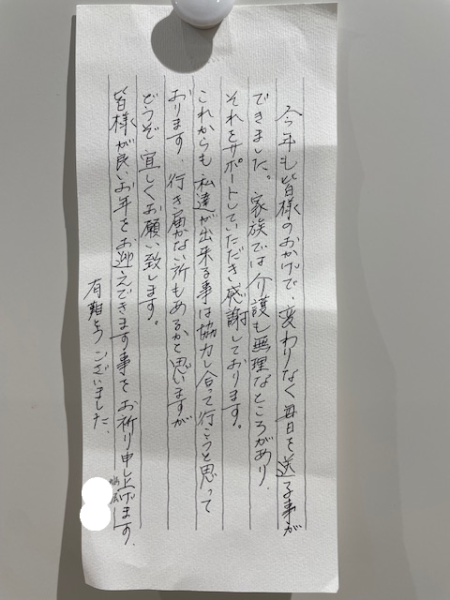 今年も皆様のおかげで、変わりなく毎日を送る事が
できました。家族では介護も無理なところがあり、
それをサポートしていただき感謝しております。
これからも私達が出来る事は協力し合って行こうと思って
おります。行き届かない所もあるかと思いますが
どうぞ宜しくお願い致します。
皆様が良いお年をお迎えできます事をお祈り申し上げます。
有難うございました。